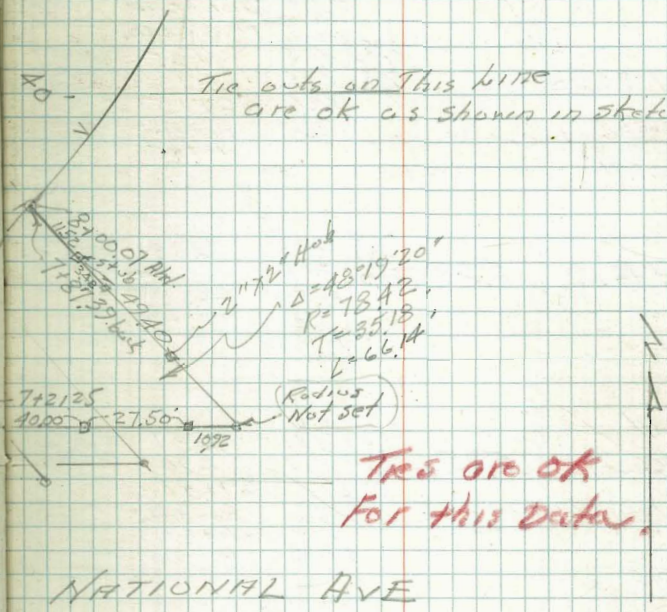 Tie outs on This Line
are ok as shown in sketc
40 -
8+00.07 Ahd.
7+81.39 back
49.40
2" x 2" Hub
Δ = 48°19'20"
R = 78.42'
T = 35.18'
L = 66.14'
Radius
Not set
7+21.25
40.00
27.50
10.92
Ties are ok
For this Data.
NATIONAL AVE